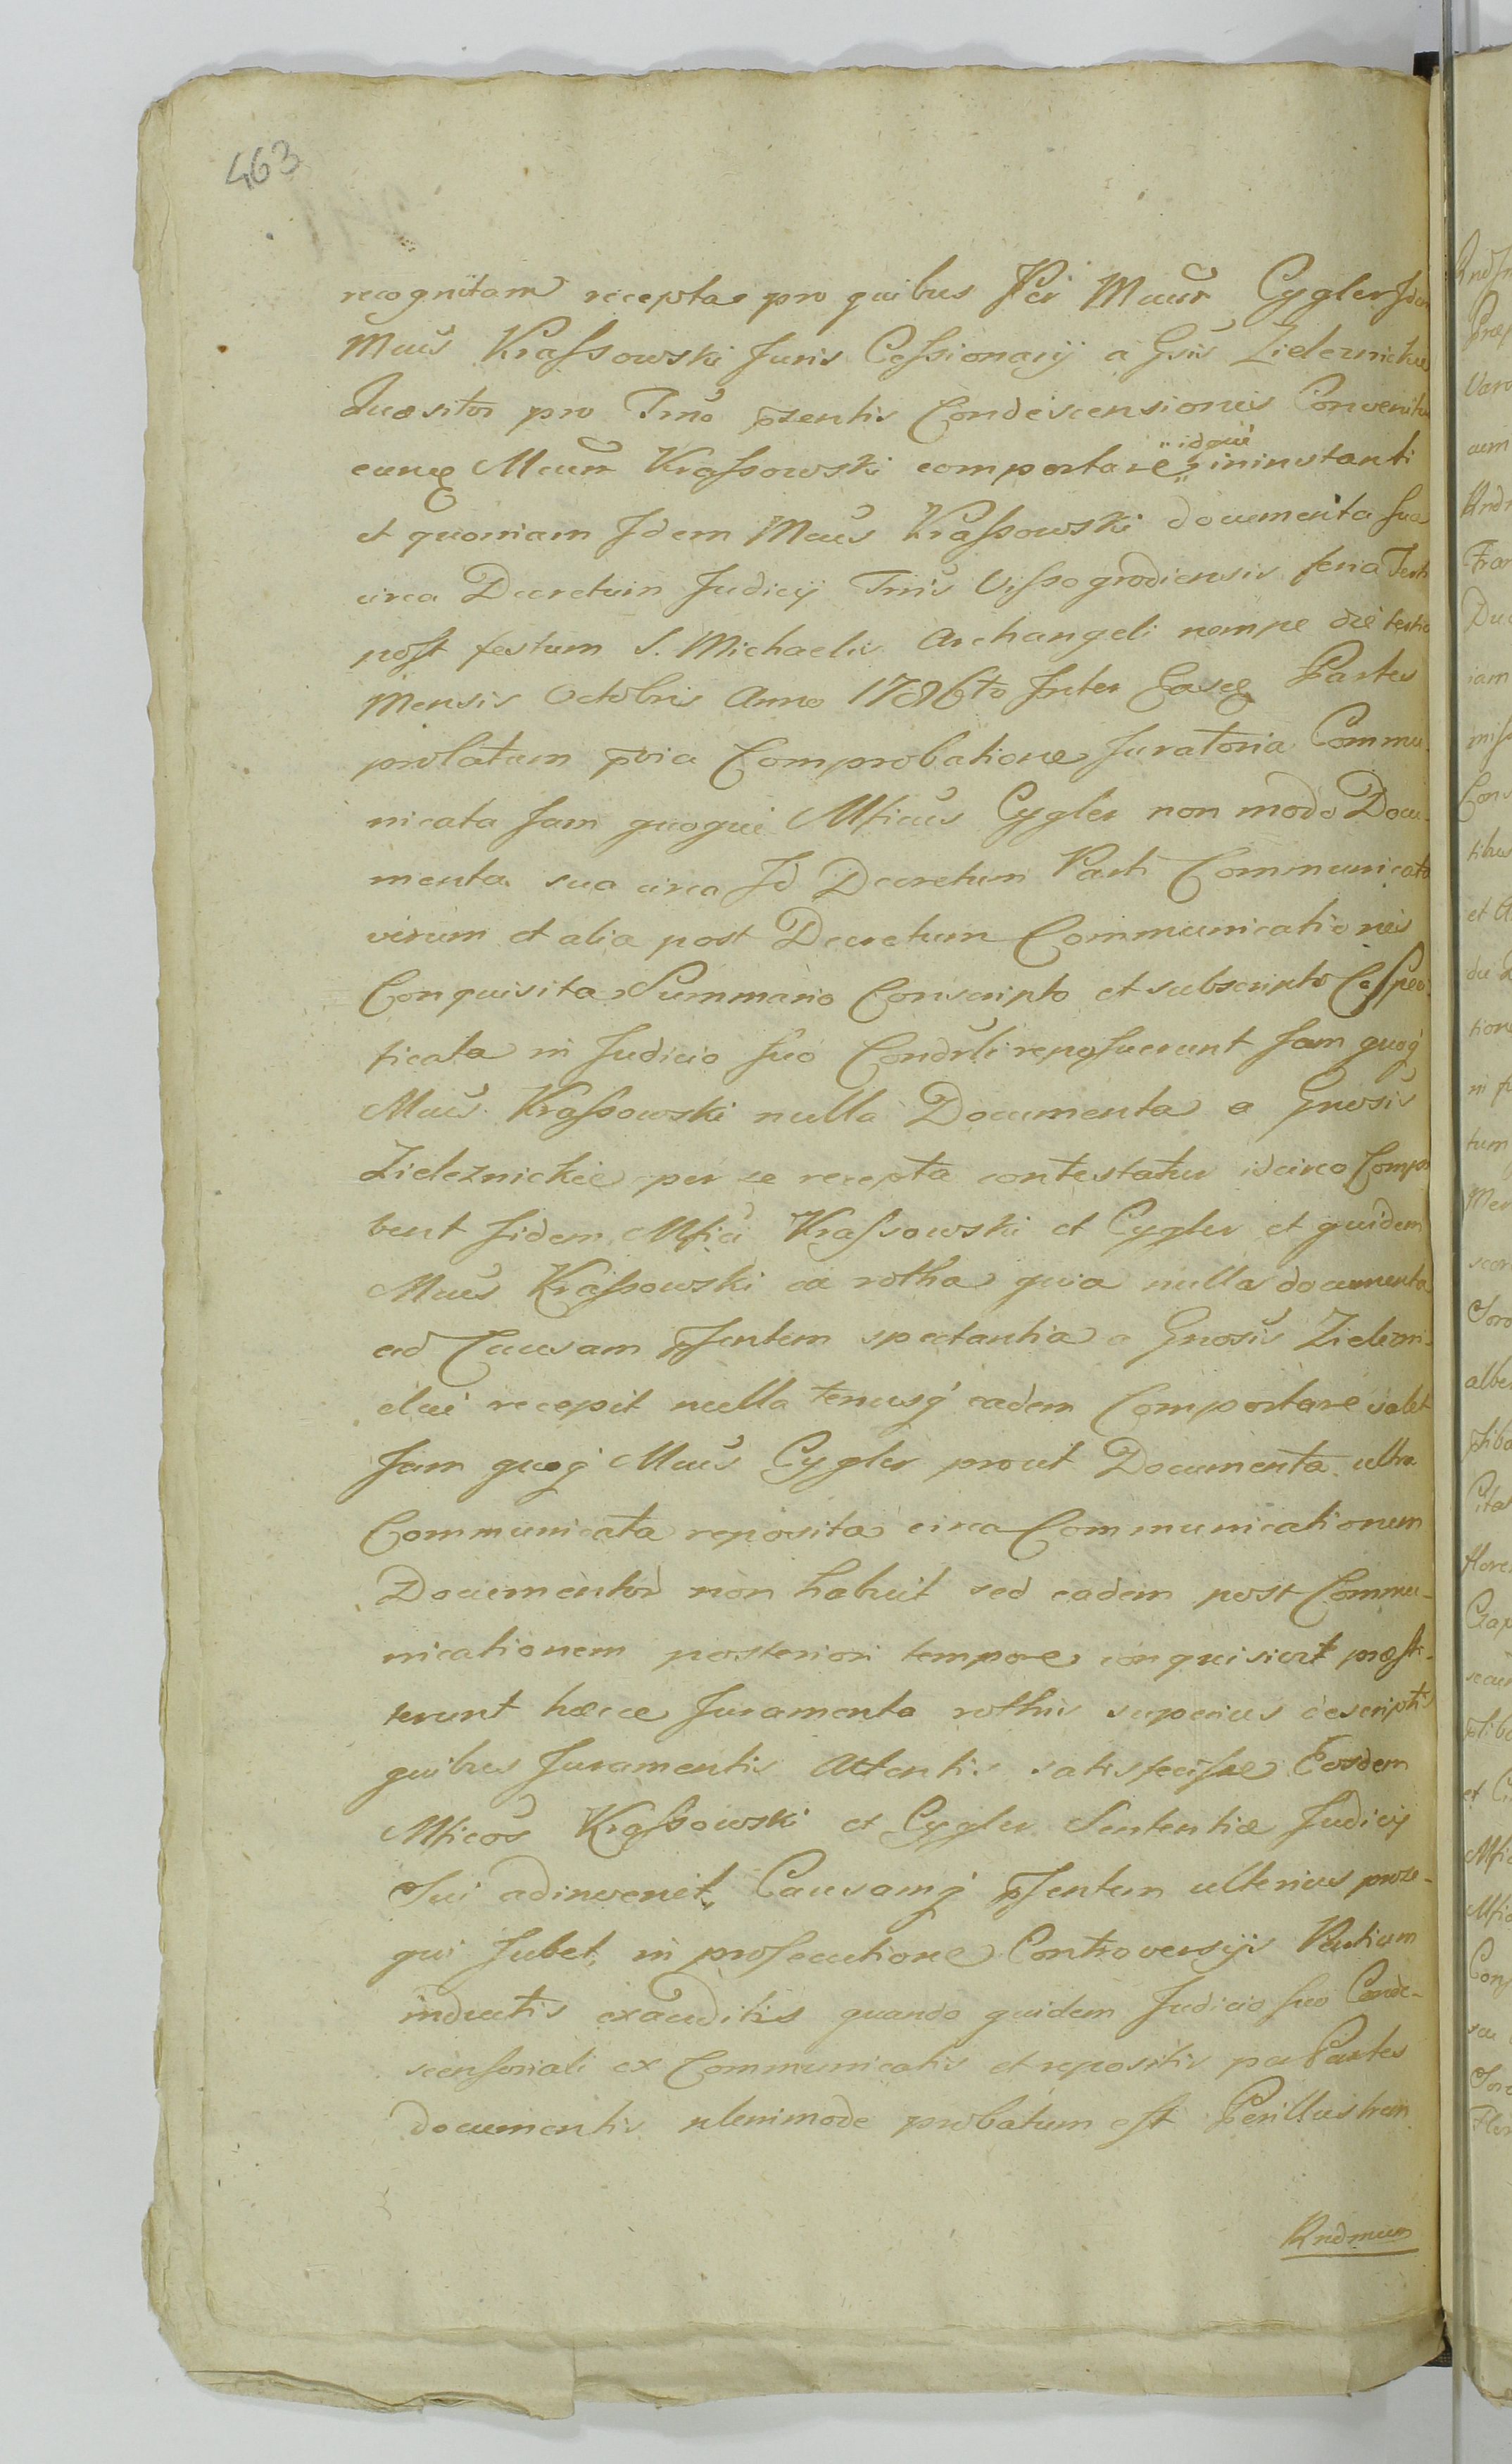 463
recognitam recepta pro quibus Per Mcum Cygler Idem
Mcus Krassowski Juris Cessionarij a Gsis Zieleznickie
Quæsitor pro Tmo pzentis Condescensionis Convenitur
eunq Mcum Krassowski comportare idque ininstanti
et quoniam Idem Mcus Krassowski documenta sua
circa Decretum Judicij Tmis Vissogrodiensis feria Terti
post festum S. Michaelis Archangeli nempe die tertio
Mensis Octobris Anno 1786to Inter Easq Partes
prolatum pvia Comprobatione Juratoria Commu-
nicata Jam quoque Mficus Cygler non modo Docu-
menta sua circa Id Decretum Parti Communicata
verum et alia post Decretum Communicationis
Conquisita Summario Conscripto et subscripto
ficata in Judicio suo Condsli reposuerunt Jam quoq
Mcus Krassowski nulla Documenta a Gnosis
Zieleznickie per se recepta contestatur idcirco Compro
bent fidem Mfici Krassowski et Cygler et quidem
Mcus Krassowski ea rotha quia nulla documenta
ad Causam psentem spectantia a Gnosis Zielezni-
ckie recepit nulla tenusq eadem Comportare valet
Jam quoq Mcus Cygler prout Documenta ultra
Communicata reposita circa Communicationem
Documentor non habuit sed eadem post Commu-
nicationem posteriori tempore conquisivit præsti-
terunt hæcce Juramenta rothis superius descriptis
quibus Juramentis Attentis satisfecisse Eosdem
Mficos Krassowski et Cygler Sententiæ Judicij
Sui adinvenit, Causamq psentem ulterius prose-
qui Jubet, in prosecutione Controversijs Partium
inductis exauditis quando quidem Judicio suo Conde-
scensoriali ex Communicatis et repositis per Partes
documentis plenimode probatum est Perillustrem
Rndmum